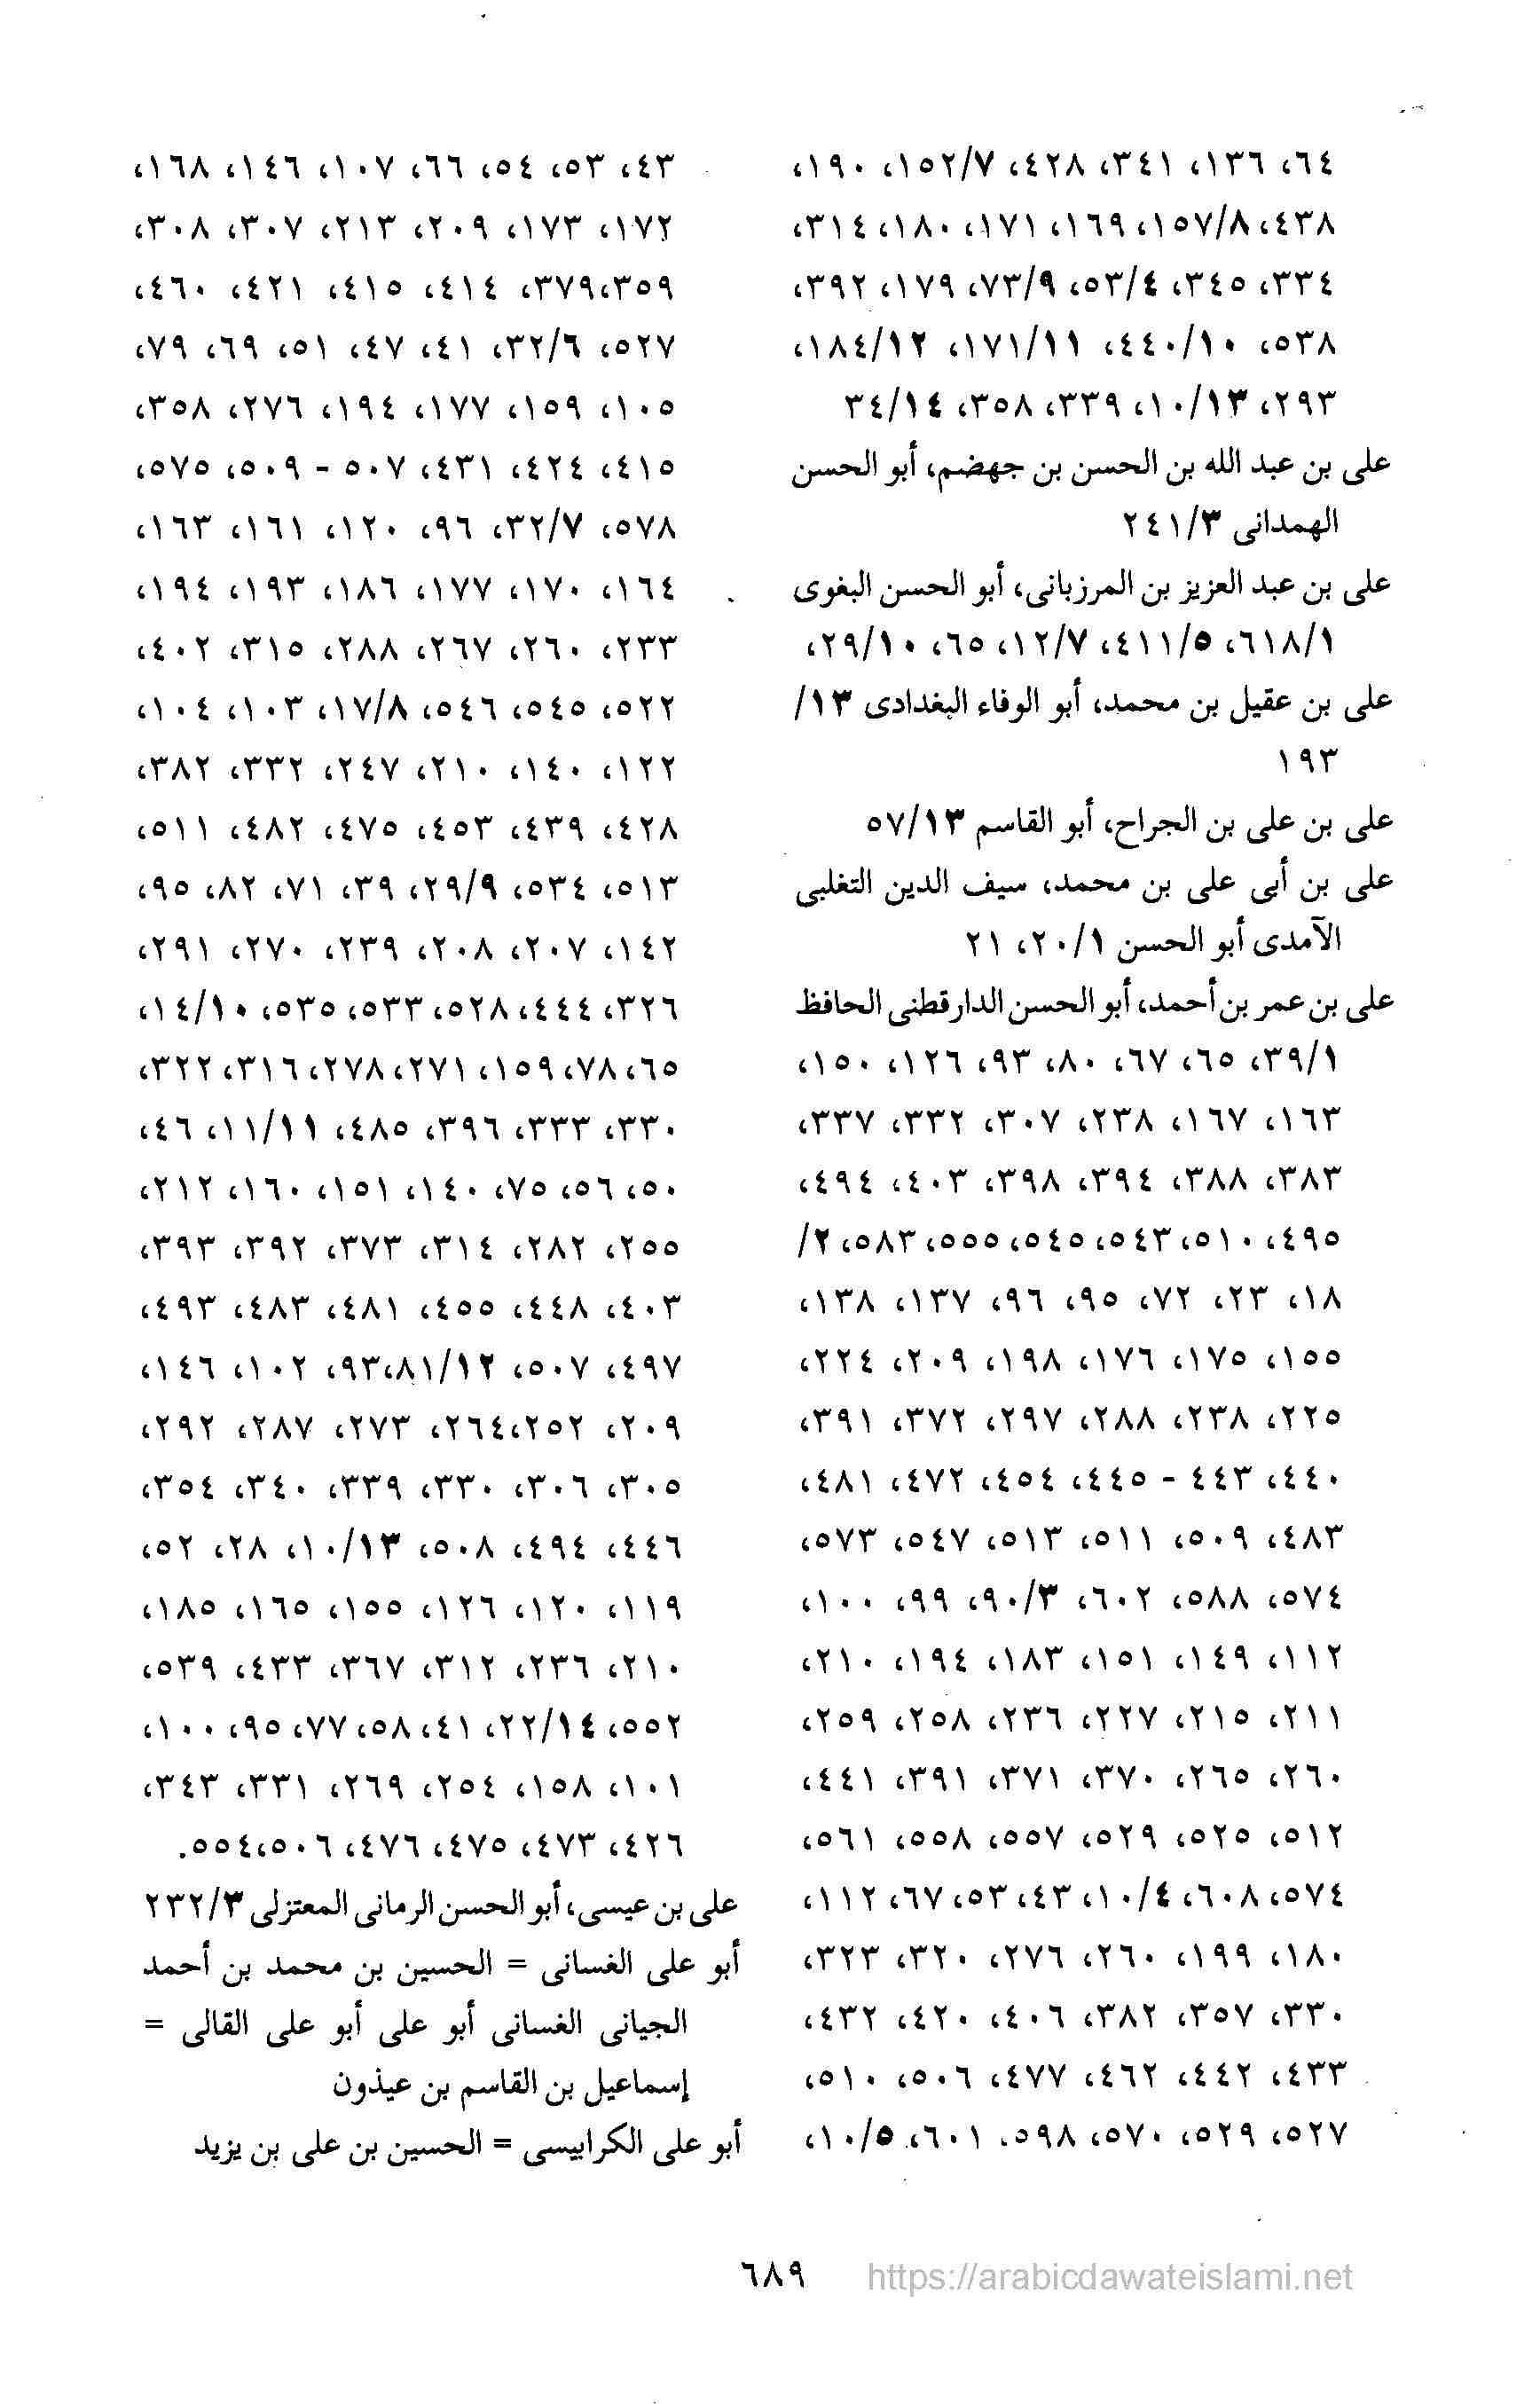 ٦٤، ١٣٦، ٣٤١، ٤٢٨، ١٥٢/٧، ١٩٠،
٤٣٨، ١٥٧/٨، ١٦٩، ١٧١، ١٨٠، ٣١٤،
٣٣٤، ٣٤٥، ٥٣/٤، ٧٣/٩، ١٧٩، ٣٩٢،
٥٣٨، ٤٤٠/١٠، ١٧١/١١، ١٨٤/١٢،
٢٩٣، ١٠/١٣، ٣٣٩، ٣٥٨، ٣٤/١٤
على بن عبد الله بن الحسن بن جهضم، أبو الحسن
الهمدانى ٢٤١/٣
على بن عبد العزيز بن المرزبانى، أبو الحسن البغوى
٦١٨/١، ٤١١/٥، ١٢/٧، ٦٥، ٢٩/١٠،
على بن عقيل بن محمد، أبو الوفاء البغدادى ١٣/
١٩٣
على بن على بن الجراح، أبو القاسم ٥٧/١٣
على بن أبى على بن محمد، سيف الدين التغلبى
الآمدى أبو الحسن ٢٠/١، ٢١
على بن عمر بن أحمد، أبو الحسن الدارقطنى الحافظ
٣٩/١، ٦٥، ٦٧، ٨٠، ٩٣، ١٢٦، ١٥٠،
١٦٣، ١٦٧، ٢٣٨، ٣٠٧، ٣٣٢، ٣٣٧،
٣٨٣، ٣٨٨، ٣٩٤، ٣٩٨، ٤٠٣، ٤٩٤،
٤٩٥، ٥١٠، ٥٤٣، ٥٤٥، ٥٥٥، ٥٨٣، ٢/
١٨، ٢٣، ٧٢، ٩٥، ٩٦، ١٣٧، ١٣٨،
١٥٥، ١٧٥، ١٧٦، ١٩٨، ٢٠٩، ٢٢٤،
٢٢٥، ٢٣٨، ٢٨٨، ٢٩٧، ٣٧٢، ٣٩١،
٤٤٠، ٤٤٣ - ٤٤٥، ٤٥٤، ٤٧٢، ٤٨١،
٤٨٣، ٥٠٩، ٥١١، ٥١٣، ٥٤٧، ٥٧٣،
٥٧٤، ٥٨٨، ٦٠٢، ٩٠/٣، ٩٩، ١٠٠،
١١٢، ١٤٩، ١٥١، ١٨٣، ١٩٤، ٢١٠،
٢١١، ٢١٥، ٢٢٧، ٢٣٦، ٢٥٨، ٢٥٩،
٢٦٠، ٢٦٥، ٣٧٠، ٣٧١، ٣٩١، ٤٤١،
٥١٢، ٥٢٥، ٥٢٩، ٥٥٧، ٥٥٨، ٥٦١،
٥٧٤، ٦٠٨، ١٠/٤، ٤٣، ٥٣، ٦٧، ١١٢،
١٨٠، ١٩٩، ٢٦٠، ٢٧٦، ٣٢٠، ٣٢٣،
٣٣٠، ٣٥٧، ٣٨٢، ٤٠٦، ٤٢٠، ٤٣٢،
٤٣٣، ٤٤٢، ٤٦٢، ٤٧٧، ٥٠٦، ٥١٠،
٥٢٧، ٥٢٩، ٥٧٠، ٥٩٨. ٦٠١، ١٠/٥،
٤٣، ٥٣، ٥٤، ٦٦، ١٠٧، ١٤٦، ١٦٨،
١٧٢، ١٧٣، ٢٠٩، ٢١٣، ٣٠٧، ٣٠٨،
٣٥٩،٣٧٩، ٤١٤، ٤١٥، ٤٢١، ٤٦٠،
٥٢٧، ٣٢/٦، ٤١، ٤٧، ٥١، ٦٩، ٧٩،
١٠٥، ١٥٩، ١٧٧، ١٩٤، ٢٧٦، ٣٥٨،
٤١٥، ٤٢٤، ٤٣١، ٥٠٧ - ٥٠٩، ٥٧٥،
٥٧٨، ٣٢/٧، ٩٦، ١٢٠، ١٦١، ١٦٣،
١٦٤، ١٧٠، ١٧٧، ١٨٦، ١٩٣، ١٩٤،
٢٣٣، ٢٦٠، ٢٦٧، ٢٨٨، ٣١٥، ٤٠٢،
٥٢٢، ٥٤٥، ٥٤٦، ١٧/٨، ١٠٣، ١٠٤،
١٢٢، ١٤٠، ٢١٠، ٢٤٧، ٣٣٢، ٣٨٢،
٤٢٨، ٤٣٩، ٤٥٣، ٤٧٥، ٤٨٢، ٥١١،
٥١٣، ٥٣٤، ٢٩/٩، ٣٩، ٧١، ٨٢، ٩٥،
١٤٢، ٢٠٧، ٢٠٨، ٢٣٩، ٢٧٠، ٢٩١،
٣٢٦، ٤٤٤، ٥٢٨، ٥٣٣، ٥٣٥، ١٤/١٠،
٦٥، ٧٨، ١٥٩، ٢٧١، ٢٧٨، ٣١٦، ٣٢٢،
٣٣٠، ٣٣٣، ٣٩٦، ٤٨٥، ١١/١١، ٤٦،
٥٠، ٥٦، ٧٥، ١٤٠، ١٥١، ١٦٠، ٢١٢،
٢٥٥، ٢٨٢، ٣١٤، ٣٧٣، ٣٩٢، ٣٩٣،
٤٠٣، ٤٤٨، ٤٥٥، ٤٨١، ٤٨٣، ٤٩٣،
٤٩٧، ٥٠٧، ٨١/١٢،٩٣، ١٠٢، ١٤٦،
٢٠٩، ٢٥٢،٢٦٤، ٢٧٣، ٢٨٧، ٢٩٢،
٣٠٥، ٣٠٦، ٣٣٠، ٣٣٩، ٣٤٠، ٣٥٤،
٤٤٦، ٤٩٤، ٥٠٨، ١٠/١٣، ٢٨، ٥٢،
١١٩، ١٢٠، ١٢٦، ١٥٥، ١٦٥، ١٨٥،
٢١٠، ٢٣٦، ٣١٢، ٣٦٧، ٤٣٣، ٥٣٩،
٥٥٢، ٢٢/١٤، ٤١، ٥٨، ٧٧، ٩٥، ١٠٠،
١٠١، ١٥٨، ٢٥٤، ٢٦٩، ٣٣١، ٣٤٣،
٤٢٦، ٤٧٣، ٤٧٥، ٤٧٦، ٥٠٦،٥٥٤.
على بن عيسى، أبو الحسن الرمانى المعتزلى ٢٣٢/٣
أبو على الغسانى = الحسين بن محمد بن أحمد
الجيانى الغسانى أبو على أبو على القالى =
إسماعيل بن القاسم بن عيذون
أبو على الكرابيسى = الحسين بن على بن يزيد
٦٨٩
https://arabicdawateislami.net